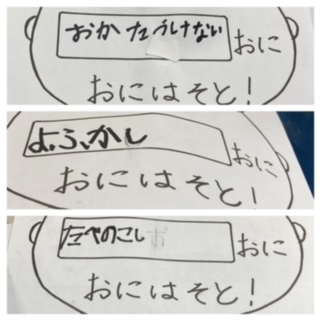 おかたづけない おに
おにはそと!
よふかし おに
おにはそと!
たべのこし おに
おにはそと!